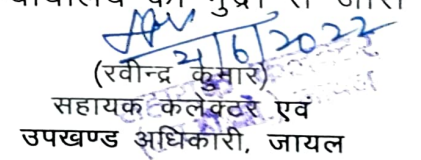 2/6/2022
(रवीन्द्र कुमार)
सहायक कलेक्टर एवं
उपखण्ड अधिकारी, जायल